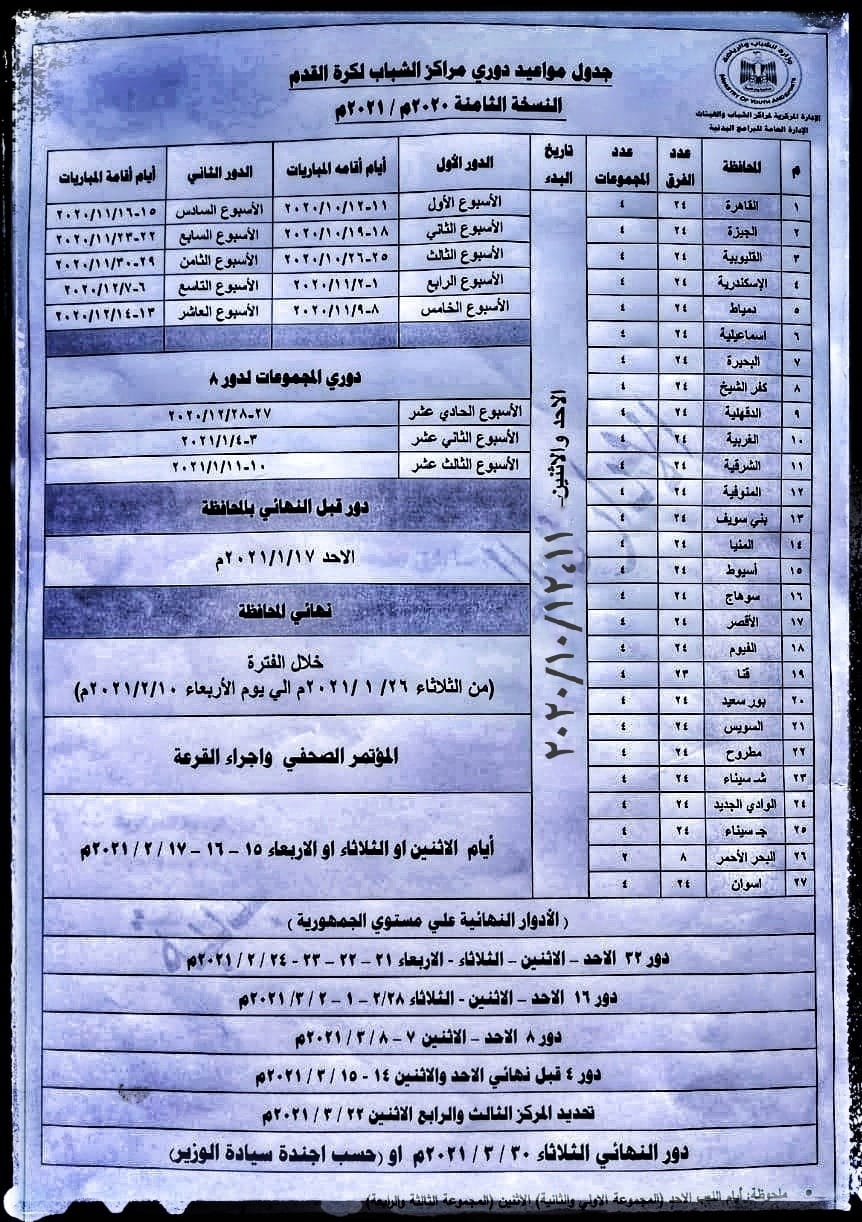 وزارة الشباب والرياضة
MINISTRY OF YOUTH AND SPORTS
الإدارة المركزية لمراكز الشباب والهيئات
الإدارة العامة للبرامج البدنية
جدول مواعيد دوري مراكز الشباب لكرة القدم
النسخة الثامنة ٢٠٢٠م / ٢٠٢١م
م المحافظة عدد الفرق عدد المجموعات تاريخ البدء
١ القاهرة ٢٤ ٤
٢ الجيزة ٢٤ ٤
٣ القليوبية ٢٤ ٤
٤ الإسكندرية ٢٤ ٤
٥ دمياط ٢٤ ٤
٦ اسماعيلية ٢٤ ٤
٧ البحيرة ٢٤ ٤
٨ كفر الشيخ ٢٤ ٤
٩ الدقهلية ٢٤ ٤
١٠ الغربية ٢٤ ٤
١١ الشرقية ٢٤ ٤
١٢ المنوفية ٢٤ ٤
١٣ بني سويف ٢٤ ٤
١٤ المنيا ٢٤ ٤
١٥ أسيوط ٢٤ ٤
١٦ سوهاج ٢٤ ٤
١٧ الأقصر ٢٤ ٤
١٨ الفيوم ٢٤ ٤
١٩ قنا ٢٣ ٤
٢٠ بور سعيد ٢٤ ٤
٢١ السويس ٢٤ ٤
٢٢ مطروح ٢٤ ٤
٢٣ شـ سيناء ٢٤ ٤
٢٤ الوادي الجديد ٢٤ ٤
٢٥ جـ سيناء ٢٤ ٤
٢٦ البحر الأحمر ٨ ٢
٢٧ اسوان ٢٤ ٤
الاحد والاثنين- ٢٠٢٠/١٠/١٢،١١
الدور الأول أيام أقامه المباريات الدور الثاني أيام أقامة المباريات
الأسبوع الأول ١١-٢٠٢٠/١٠/١٢ الأسبوع السادس ١٥-٢٠٢٠/١١/١٦
الأسبوع الثاني ١٨-٢٠٢٠/١٠/١٩ الأسبوع السابع ٢٢-٢٠٢٠/١١/٢٣
الأسبوع الثالث ٢٥-٢٠٢٠/١٠/٢٦ الأسبوع الثامن ٢٩-٢٠٢٠/١١/٣٠
الأسبوع الرابع ١-٢٠٢٠/١١/٢ الأسبوع التاسع ٦-٢٠٢٠/١٢/٧
الأسبوع الخامس ٨-٢٠٢٠/١١/٩ الأسبوع العاشر ١٣-٢٠٢٠/١٢/١٤
دوري المجموعات لدور ٨
الأسبوع الحادي عشر ٢٧-٢٠٢٠/١٢/٢٨
الأسبوع الثاني عشر ٣-٢٠٢١/١/٤
الأسبوع الثالث عشر ١٠-٢٠٢١/١/١١
دور قبل النهائي بالمحافظة
الاحد ٢٠٢١/١/١٧م
نهائي المحافظة
خلال الفترة
(من الثلاثاء ٢٦/ ١ /٢٠٢١م الي يوم الأربعاء ٢٠٢١/٢/١٠م)
المؤتمر الصحفي واجراء القرعة
أيام الاثنين او الثلاثاء او الاربعاء ١٥ - ١٦ - ١٧ / ٢ / ٢٠٢١م
( الأدوار النهائية علي مستوي الجمهورية )
دور ٣٢ الاحد – الاثنين – الثلاثاء - الاربعاء ٢١ - ٢٢ - ٢٣ - ٢٤ / ٢ / ٢٠٢١م
دور ١٦ الاحد – الاثنين - الثلاثاء ٢/٢٨ - ١ - ٢ /٣/ ٢٠٢١م
دور ٨ الاحد – الاثنين ٧ - ٨ / ٣ / ٢٠٢١م
دور ٤ قبل نهائي الاحد والاثنين ١٤ - ١٥ / ٣ / ٢٠٢١م
تحديد المركز الثالث والرابع الاثنين ٢٢ / ٣ / ٢٠٢١م
دور النهائي الثلاثاء ٣٠ / ٣ / ٢٠٢١م او (حسب اجندة سيادة الوزير)
ملحوظة: أيام اللعب الاحد (المجموعة الاولي والثانية) الاثنين (المجموعة الثالثة والرابعة)